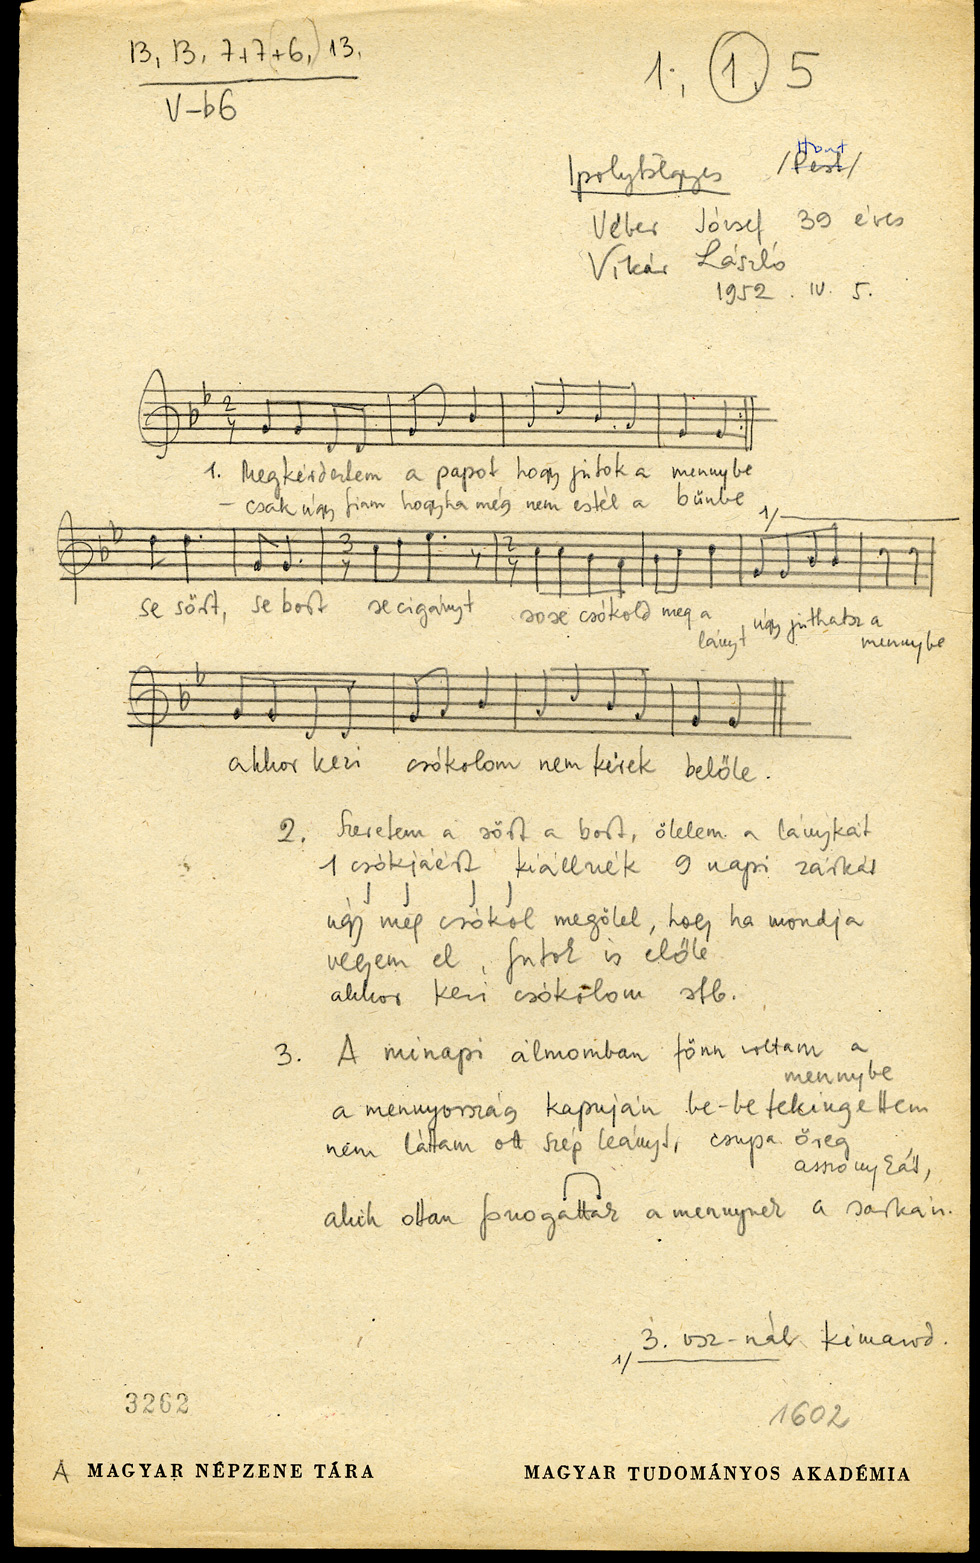 13, 13, 7+7+6, 13.
V-b6
1; 1, 5
Ipolybélgyes /Pest/ Hont
Véber József 39 éves
Vikár László
1952. IV. 5.
1. Megkérdeztem a papot hogy jutok a mennybe
– csak úgy fiam hogyha még nem estél a bűnbe
1/
se sört, se bort se cigányt sose csókold meg a lányt úgy juthatsz a mennybe
akkor kezi csókolom nem kérek belőle.
2. Szeretem a sört a bort, ölelem a lánykát
1 csókjáért kiállnék 9 napi zárkát
úgy meg csókol megölel, hogy ha mondja
vegyem el, futok is előle
akkor kezi csókolom stb.
3. A minapi álmomban fönn voltam a
mennybe
a mennyország kapuján be-be tekingettem
nem láttam ott szép leányt, csupa öreg
asszonykát,
akik ottan fuvogatták a mennynek a sarkán.
1/ 3. vsz-nál kimarad.
3262
1602
A MAGYAR NÉPZENE TÁRA
MAGYAR TUDOMÁNYOS AKADÉMIA